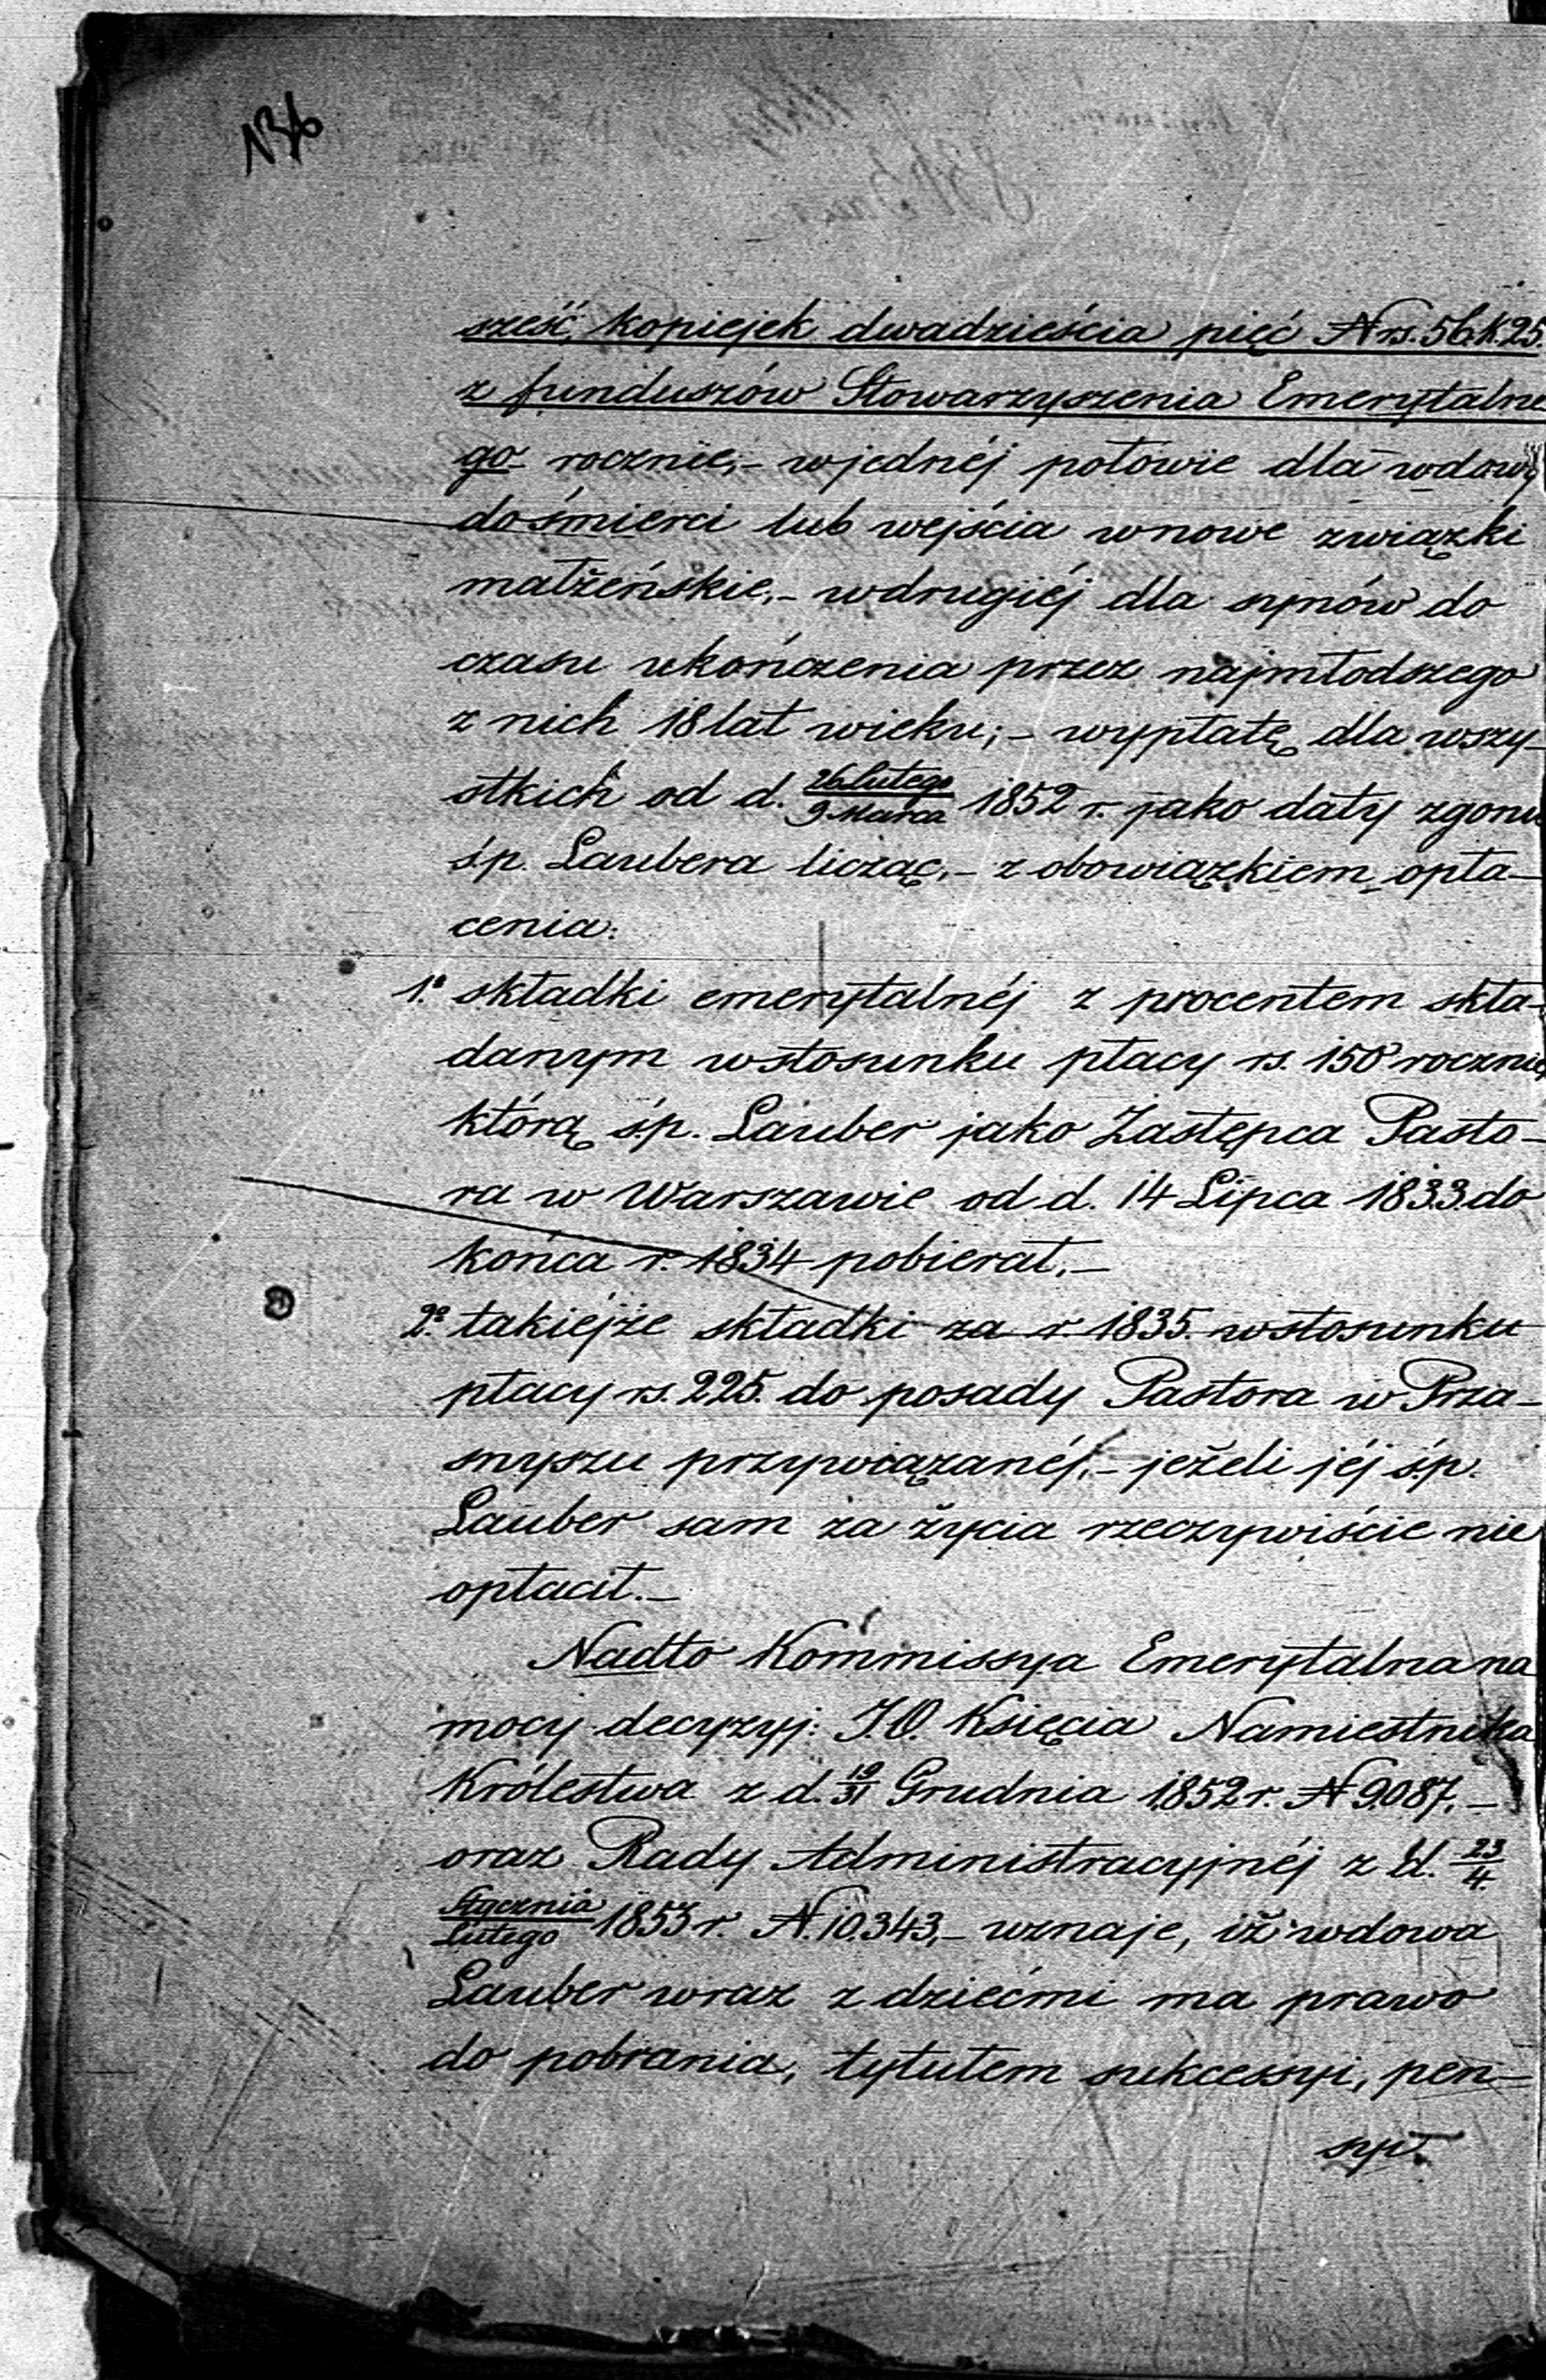 N36
sześć, kopiejek dwadzieścia pięć N rs. 56. k. 25.
z funduszów Stowarzyszenia Emerytalne
go rocznie,- w jednéj połowie dla wdowy
do śmierci lub wejścia w nowe związki
małżeńskie,- w drugiéj dla synów do
czasu ukończenia przez najmłodszego
z nich 18 lat wieku;- wypłatę dla wszy-
stkich od d. 26 Lutego / 9 Marca 1852 r. jako daty zgonu
ś.p. Laubera licząc,- z obowiązkiem opła-
cenia:
1.° składki emerytalnéj z procentem skła-
danym w stosunku płacy rs. 150 rocznie,
którą ś.p. Lauber jako Zastępca Pasto-
ra w Warszawie od d. 14 Lipca 1833. do
końca r. 1834 pobierał,-
2.° takiejże składki za r. 1835. w stosunku
płacy rs. 225. do posady Pastora w Prza-
snyszu przywiązanéj,- jeżeli jéj ś.p.
Lauber sam za życia rzeczywiście nie
opłacił.-
Nadto Kommissya Emerytalna na
mocy decyzyj: J.O. Księcia Namiestnika
Królestwa z d. 19/31 Grudnia 1852 r. N 9087,-
oraz Rady Administracyjnéj z d. 23/4.
Stycznia / Lutego 1853 r. N. 10.343,- uznaje, iż wdowa
Lauber wraz z dziećmi ma prawo
do pobrania, tytułem sukcessyi, pen-
syi